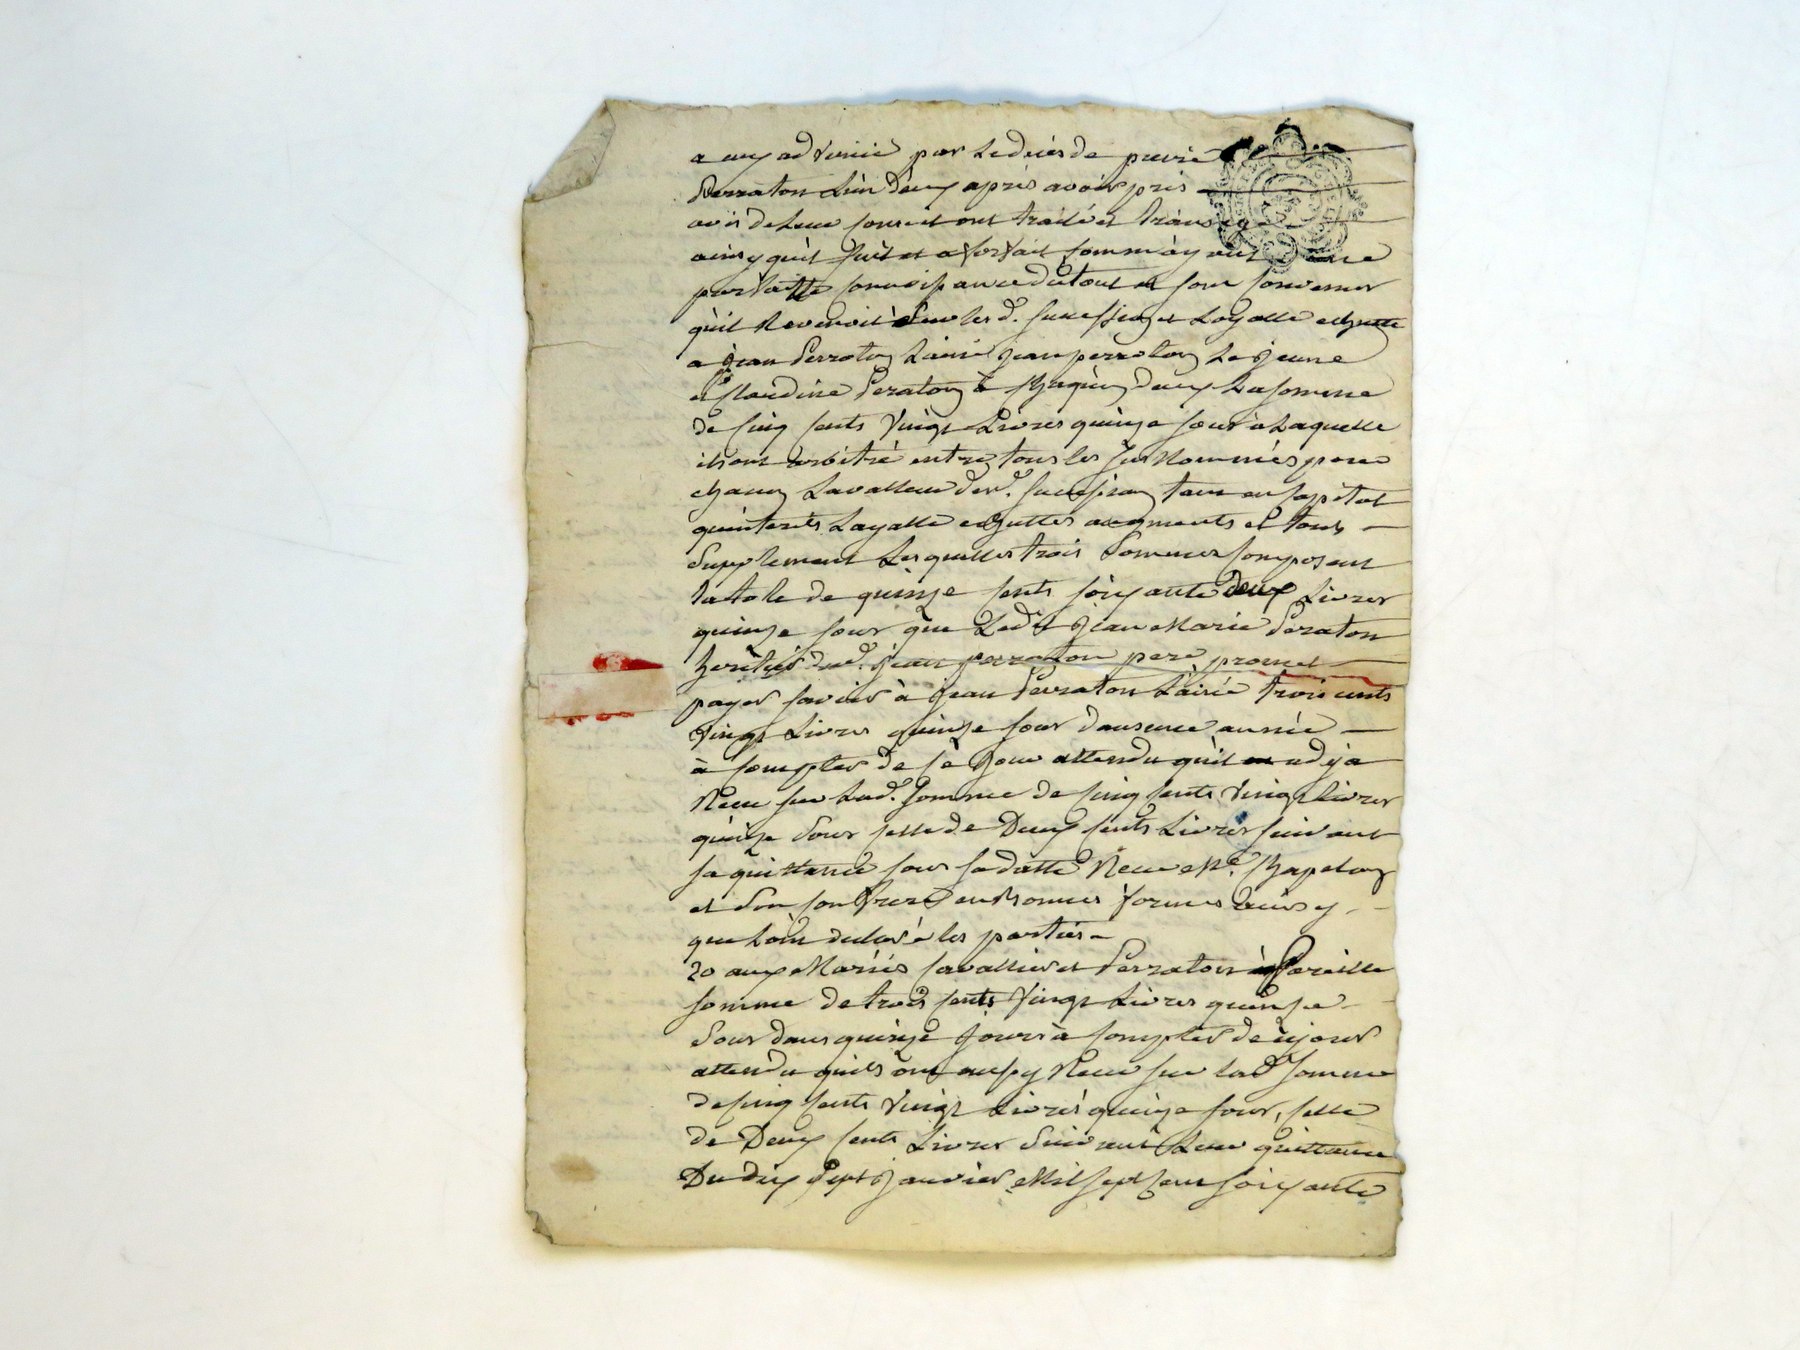 a eux advenüe par Le déces de pierre
Perraton L'un d'eux apres avoir pris
avis de Leur conseil ont traité et transigé
ainsy quil suit et a forfait comm'ayant une
parfaitte connoissance du tout et sont convenus
qu'il Revenoit sur les d. successions et Layette
a jean Perraton L'ainé jean perraton Le jeune
et Claudine Peraton à chaqun d'eux La somme
de cinq cents vingt Livres quinze sous à Laquelle
ils ont arbitré entre tous les sus Nommés pour
chacun La valleur des d. successions tant en capital
qu'interets Layette augments et tous
supplement Lesquelles trois sommes composent
la totale de quinze cents soixante deux Livres
quinze sous que Led. jean Marie Peraton
heritier dud. jean perraton pere promet
payer savoir à jean Perraton L'ainé trois cents
vingt Livres quinze sous dans une année
à compter de ce jour attendu qu'il a dejà
Reçu sur Lad. somme de cinq cents vingt Livres
quinze sous celle de Deux cents Livres suivant
sa quittance sous sa datte Reçue Me. Chapelon
et son confrere en bonnes formes ainsy
que L'ont declaré les parties
20 aux Mariés Cavallier et Perraton Pareille
somme de trois cents vingt Livres quinze
sous dans quinze jours à compter de ce jour
attendu quils ont aussy Reçu sur lad. somme
de cinq cents vingt Livres quinze sous, celle
de Deux cents Livres suivant Leur quittance
Du dix sept janvier Mil sept cent soixante